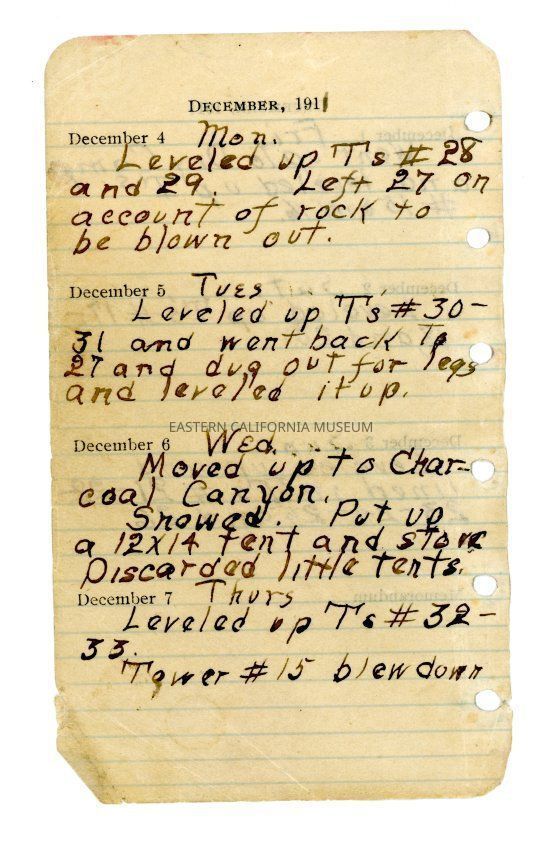 DECEMBER, 1911
December 4 Mon.
Leveled up T's #28
and 29. Left 27 on
account of rock to
be blown out.
December 5 Tues
Leveled up T's #30-
31 and went back to
27 and dug out for legs
and leveled it up.
EASTERN CALIFORNIA MUSEUM
December 6 Wed.
Moved up to Char-
coal Canyon.
Snowed. Put up
a 12x14 tent and stove
Discarded little tents.
December 7 Thurs
Leveled up T's #32-
33.
Tower #15 blew down